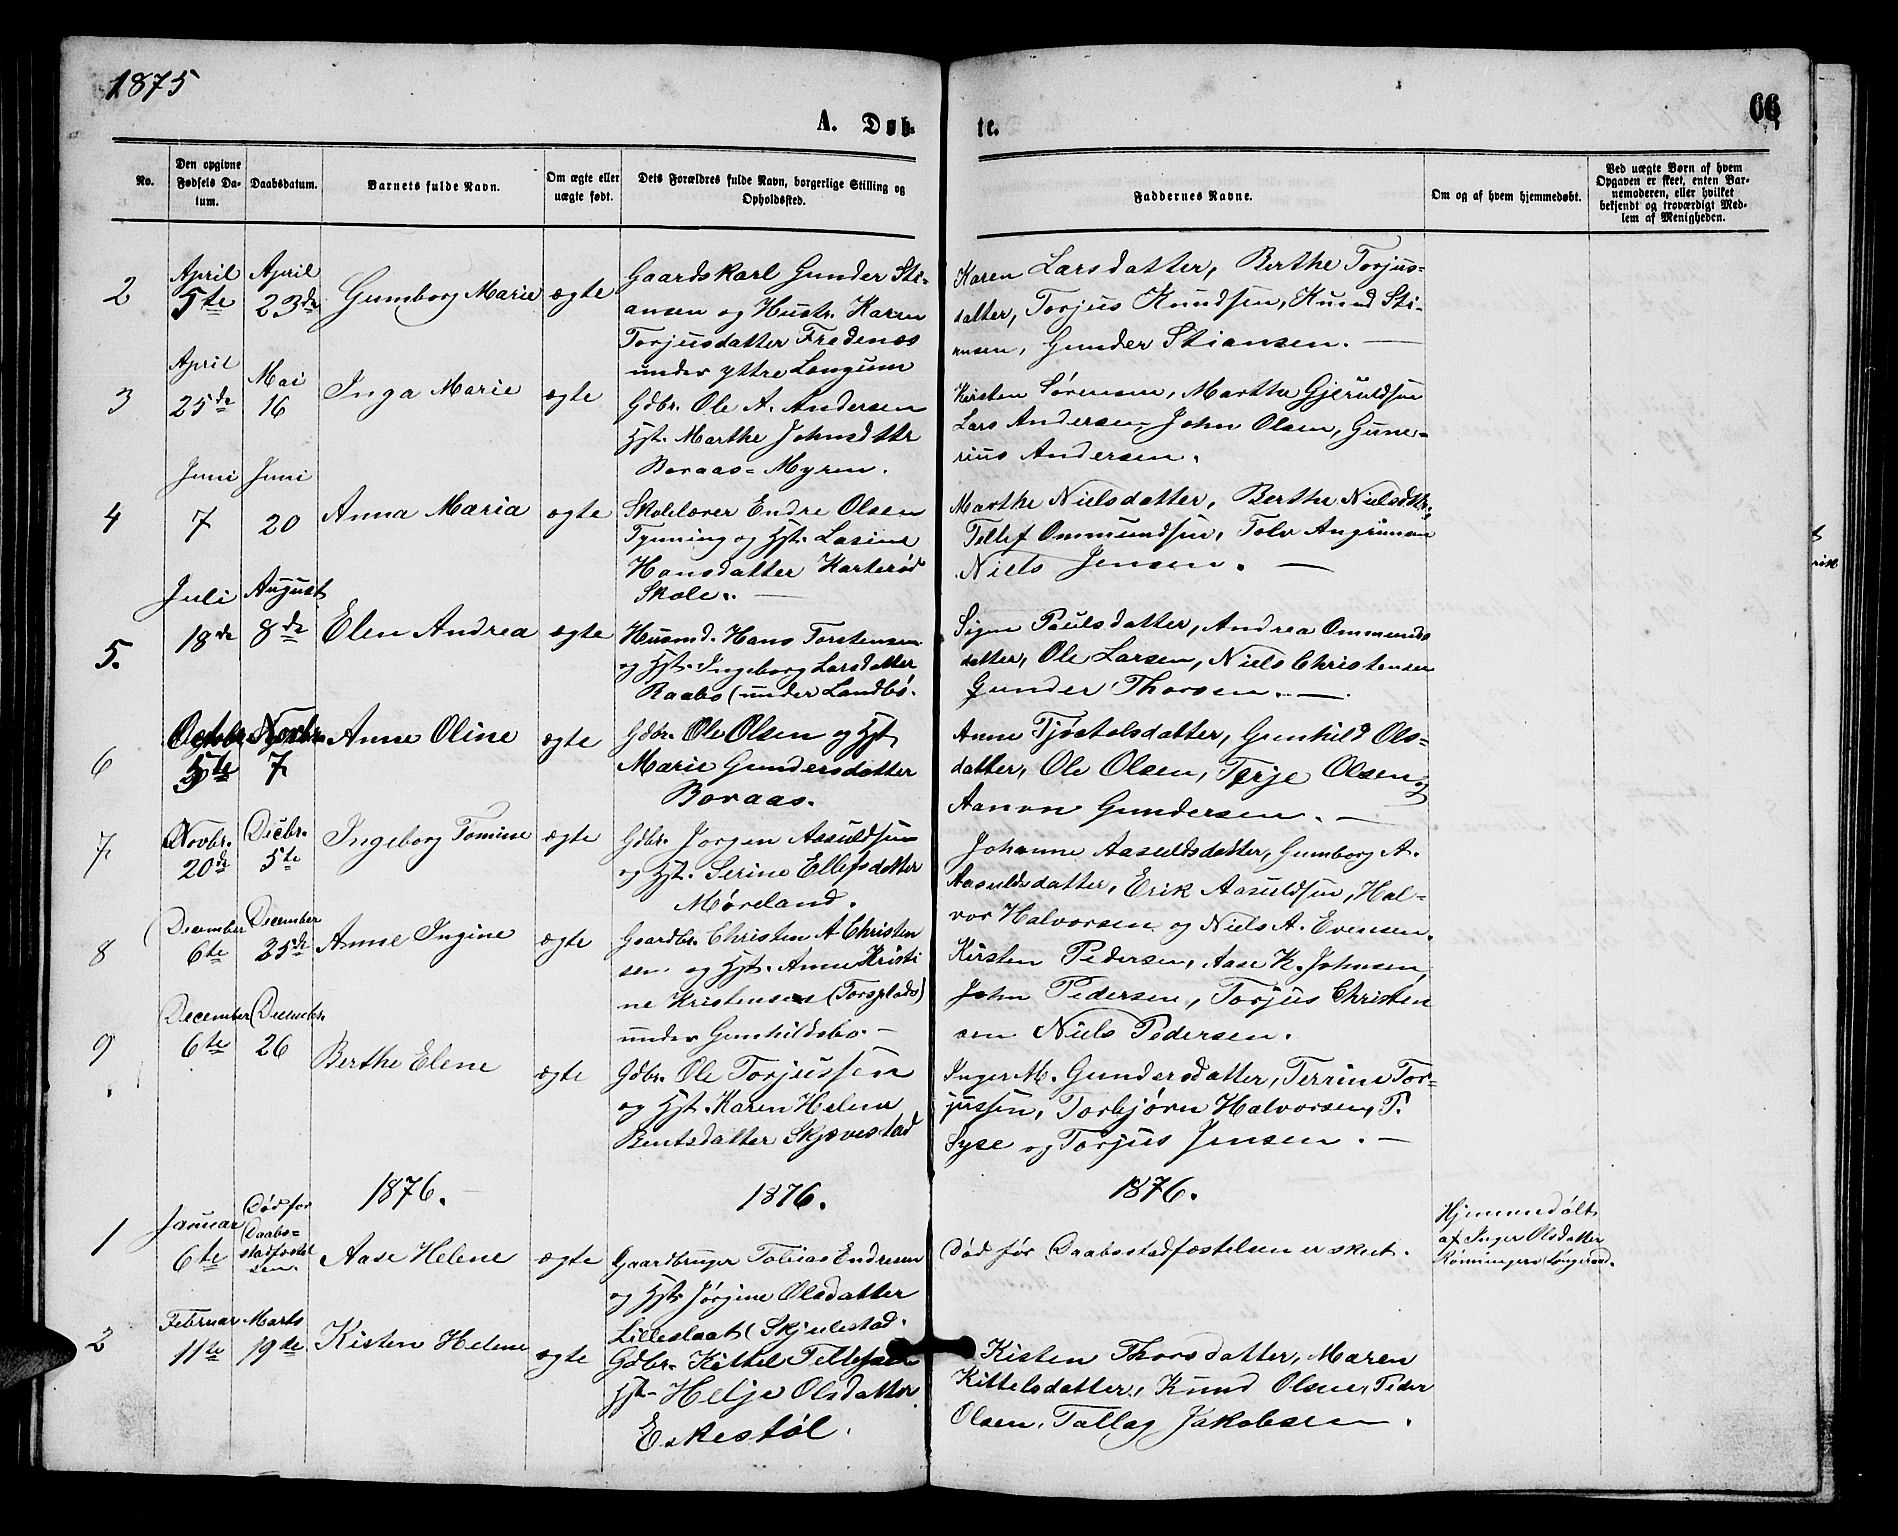 1875
66
A. Døb-
te.
No.
Den opgivne Fødsels Da-tum.
Daabsdatum.
Barnets fulde Navn.
Om ægte eller uægte født.
Dets Forældres fulde Navn, borgerlige Stilling og Opholdssted.
Faddernes Navne.
Om og af hvem hjemmedøbt.
Ved uægte Børn af hvem Opgaven er skeet, enten Bar-nemoderen, eller hvilket bekjendt og troværdigt Med-lem af Menigheden.
2
April 5te
April 23de
Gumborg Marie
ægte
Gaardskarl Gunder Sti-
ansen og Hustr. Karen
Torjusdatter Fredenæs
under yttre Langum
Karen Larsdatter, Berthe Torjus-
datter, Torjus Knudsen, Knud Sti-
ansen, Gunder Stiansen. —
3
April 25de
Mai 16
Inga Marie
ægte
Gdbr. Ole A. Andersen
Hst. Marthe Johnsdttr
Boraas-Myren.
Kirsten Sørensen, Marthe Gjeruldsen
Lars Andersen, John Olsen, Gune-
rius Andersen.
4
Juni 7
Juni 20
Anna Maria
ægte
Skolelærer Endre Olsen
Tynning og Hst. Lasine
Hansdatter Karterød
Skole. —
Marthe Nielsdatter, Berthe Nielsdttr.,
Tellef Ommundsen, Tolv
Niels Jensen. —
5.
Juli 18de
August 8de
Elen Andrea
ægte
Husmd. Hans Torstensen
og Hst. Ingeborg Larsdatter
Raabs (under Landbø.
Signe Paulsdatter, Andrea Ommunds
datter, Ole Larsen, Niels Christensen
Gunder Thorsen. —
6
Octobr 5te
Novbr. 7
Anne Oline
ægte
Gdbr. Ole Olsen og Hst.
Marie Gundersdatter
Boraas.
Anne Tjøstolsdatter, Gunhild Ols-
datter, Ole Olsen, Terje Olsen og
Aanon Gundersen. —
7
Novbr. 20de
Decbr. 5te
Ingeborg Tomine
ægte
Gdbr. Jørgen Aasuldsen
og Hst. Serine Ellefsdatter
Møreland.
Johanne Aasuldsdatter, Gumborg A.
Aasuldsdatter, Erik Aasuldsen, Hal-
vor Halvorsen og Niels A. Evensen.
8
December 6te
December 25de
Anne Ingine
ægte
Gaardbr. Christen A Christen
sen og Hst. Anne Kristi
ne Kristensen (Torsplads)
under Gunhildsbo —
Kirsten Pedersen, Aase K. Johnsen,
John Pedersen, Torjus Christen
sen Niels Pedersen.
9
December 6te
Decembr. 26
Berthe Elene
ægte
Gdbr. Ole Torjussen
og Hst. Karen Helene
Bentsdatter Skjævestad
Inger M. Gundersdatter, Terrine Tor-
jussen, Torbjørn Halvorsen, T.
Syse og Torjus Jensen. —
1876. —
1876.
1876.
1
Januar 6te
Død før Daabs-stadfæstel sen.
Aase Helene
ægte
Gaardbruger Tobias Endresen
og Hst. Jørgine Olsdatter
Lilleslaat (Skjulestad.
Død før Daabsstadfæstelsen er skeet.
Hjemmedøbt
af Inger Olsdatter
Rønningen
2
Februar 11te
Marts 19de
Kisten Helene
ægte
Gdbr. Kittel Tellefsen
Hst. Helje Olsdatter
Eskestøl.
Kisten Thorsdatter, Maren
Kittelsdatter, Knud Olsen, Peder
Olsen, Tallag Jakobsen.